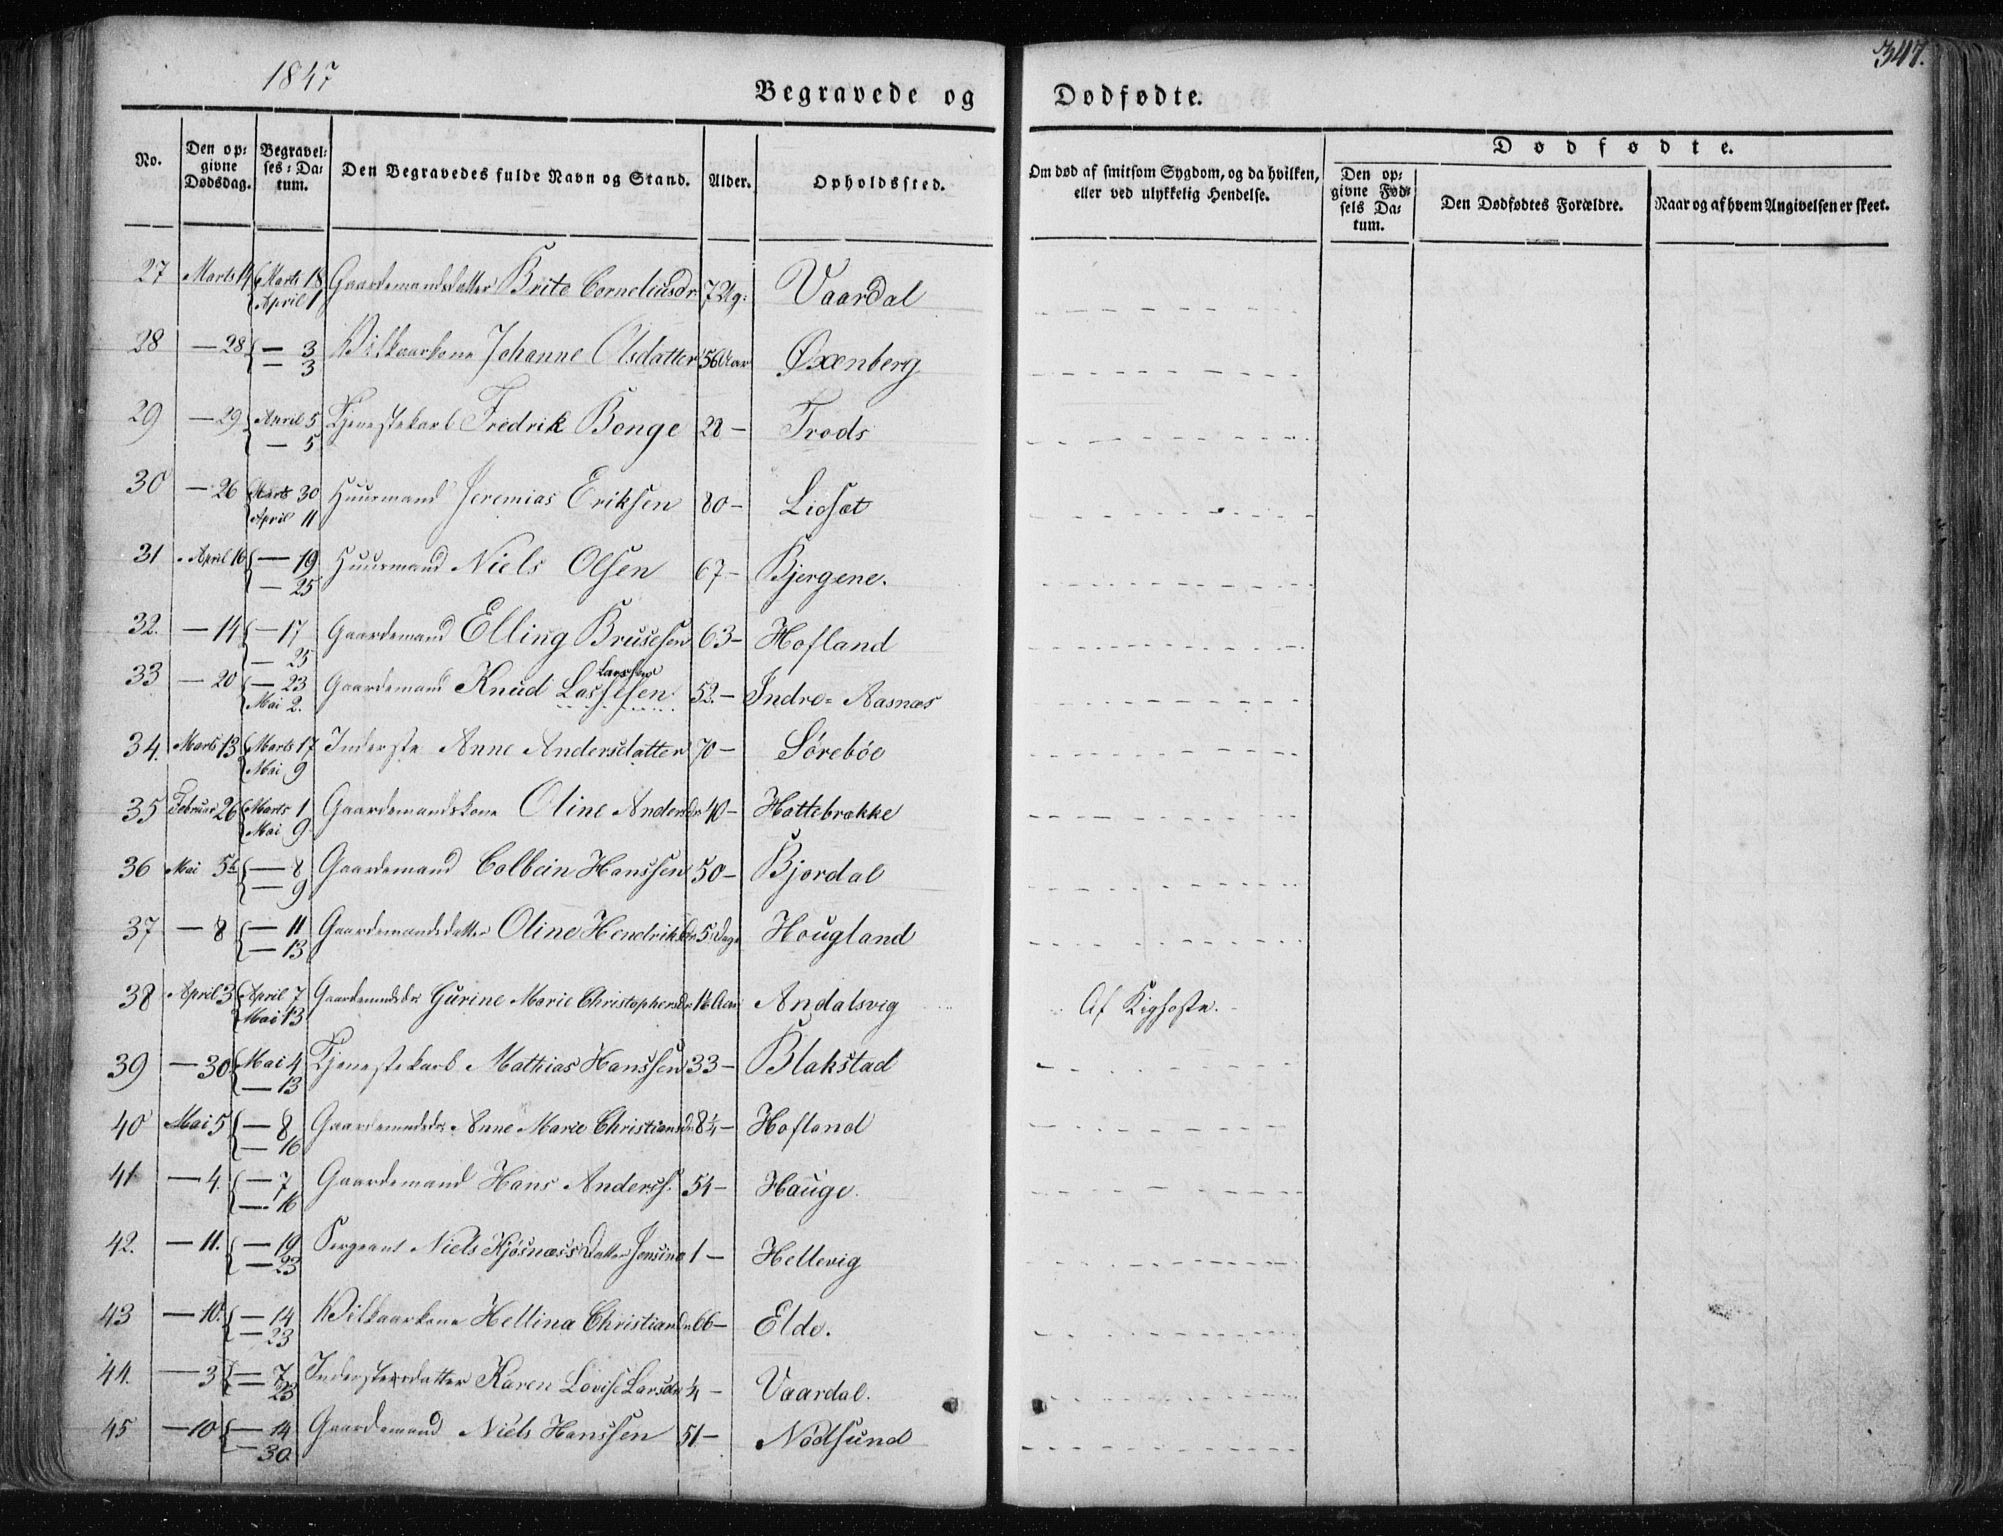 1847
347.
Begravede og Dødfødte.
No.
Den opgivne Dødsdag.
Begravelses-Datum.
Den Begravedes fulde Navn og Stand.
Alder.
Opholdssted.
Om død af smitsom Sygdom, og da hvilken, eller ved ulykkelig Hendelse.
Dødfødte.
Den opgivne Fødsels Datum.
Den Dødfødtes Forældre.
Naar og af hvem Angivelsen er skeet.
27 Marts 14 Marts 18 April 1 Gaardemandsdatter Brite Corneliusdr 7 Ug: Vaardal
28 — 28 — 3 — 3 Vilkaarkone Johanne Olsdatter 56 Aar Øxenberg
29 — 29 April 5 — 5 Tjenestekarl Fredrik Bonge 28 — Trods
30 — 26 Marts 30 April 11 Huusmand Jeremias Eriksen 80 — Lidsæt
31 April 16 — 19 — 25 Huusmand Niels Olsen 67 — Bjergene.
32. — 14 — 17 — 25 Gaardemand Elling Brusesen 63 — Hofland
33 — 20 — 23 Mai 2. Gaardemand Knud Lassesen Larssen 52. — Indre-Aasnæs
34. Marts 13 Marts 17 Mai 9 Inderste Anne Andersdatter 70 — Sørebøe
35 Februar 26 Marts 1 Mai 9 Gaardemandskone Oline Andersdr 40 — Hattebrække
36 Mai 5te — 8 — 9 Gaardemand Colbein Hanssen 50 — Bjordal
37 — 8 — 11 — 13 Gaardemandsdatter Oline Hendriksdr 5 Dage Hougland
38 April 3 April 7 Mai 13 Gaardemndsdr Gurine Marie Christophersdr Aar Andalsvig Af Kighoste.
39 — 30 Mai 4 — 13 Tjenestekarl Mathias Hanssen 33 — Blakstad
40 Mai 5 — 8 — 16 Gaardemndsdr Anne Marie Christiansdr 8¼ — Hofland
41 — 4. — 7 — 16 Gaardemand Hans Anderss. 54 — Hauge.
42. — 11. — 19 — 23 Sergeant Niels Kjøsnæss Datter Jensine 1 — Hellevig
43 — 10. — 14 — 23 Vilkaarkone Hellina Christiansdr 66 — Elde.
44. — 3 — 7 — 23 Inderstesdatter Karen Lovise Larsdr ¼ — Vaardal.
45 — 10 — 14 — 30. Gaardemand Niels Hanssen 51 — Nødsund